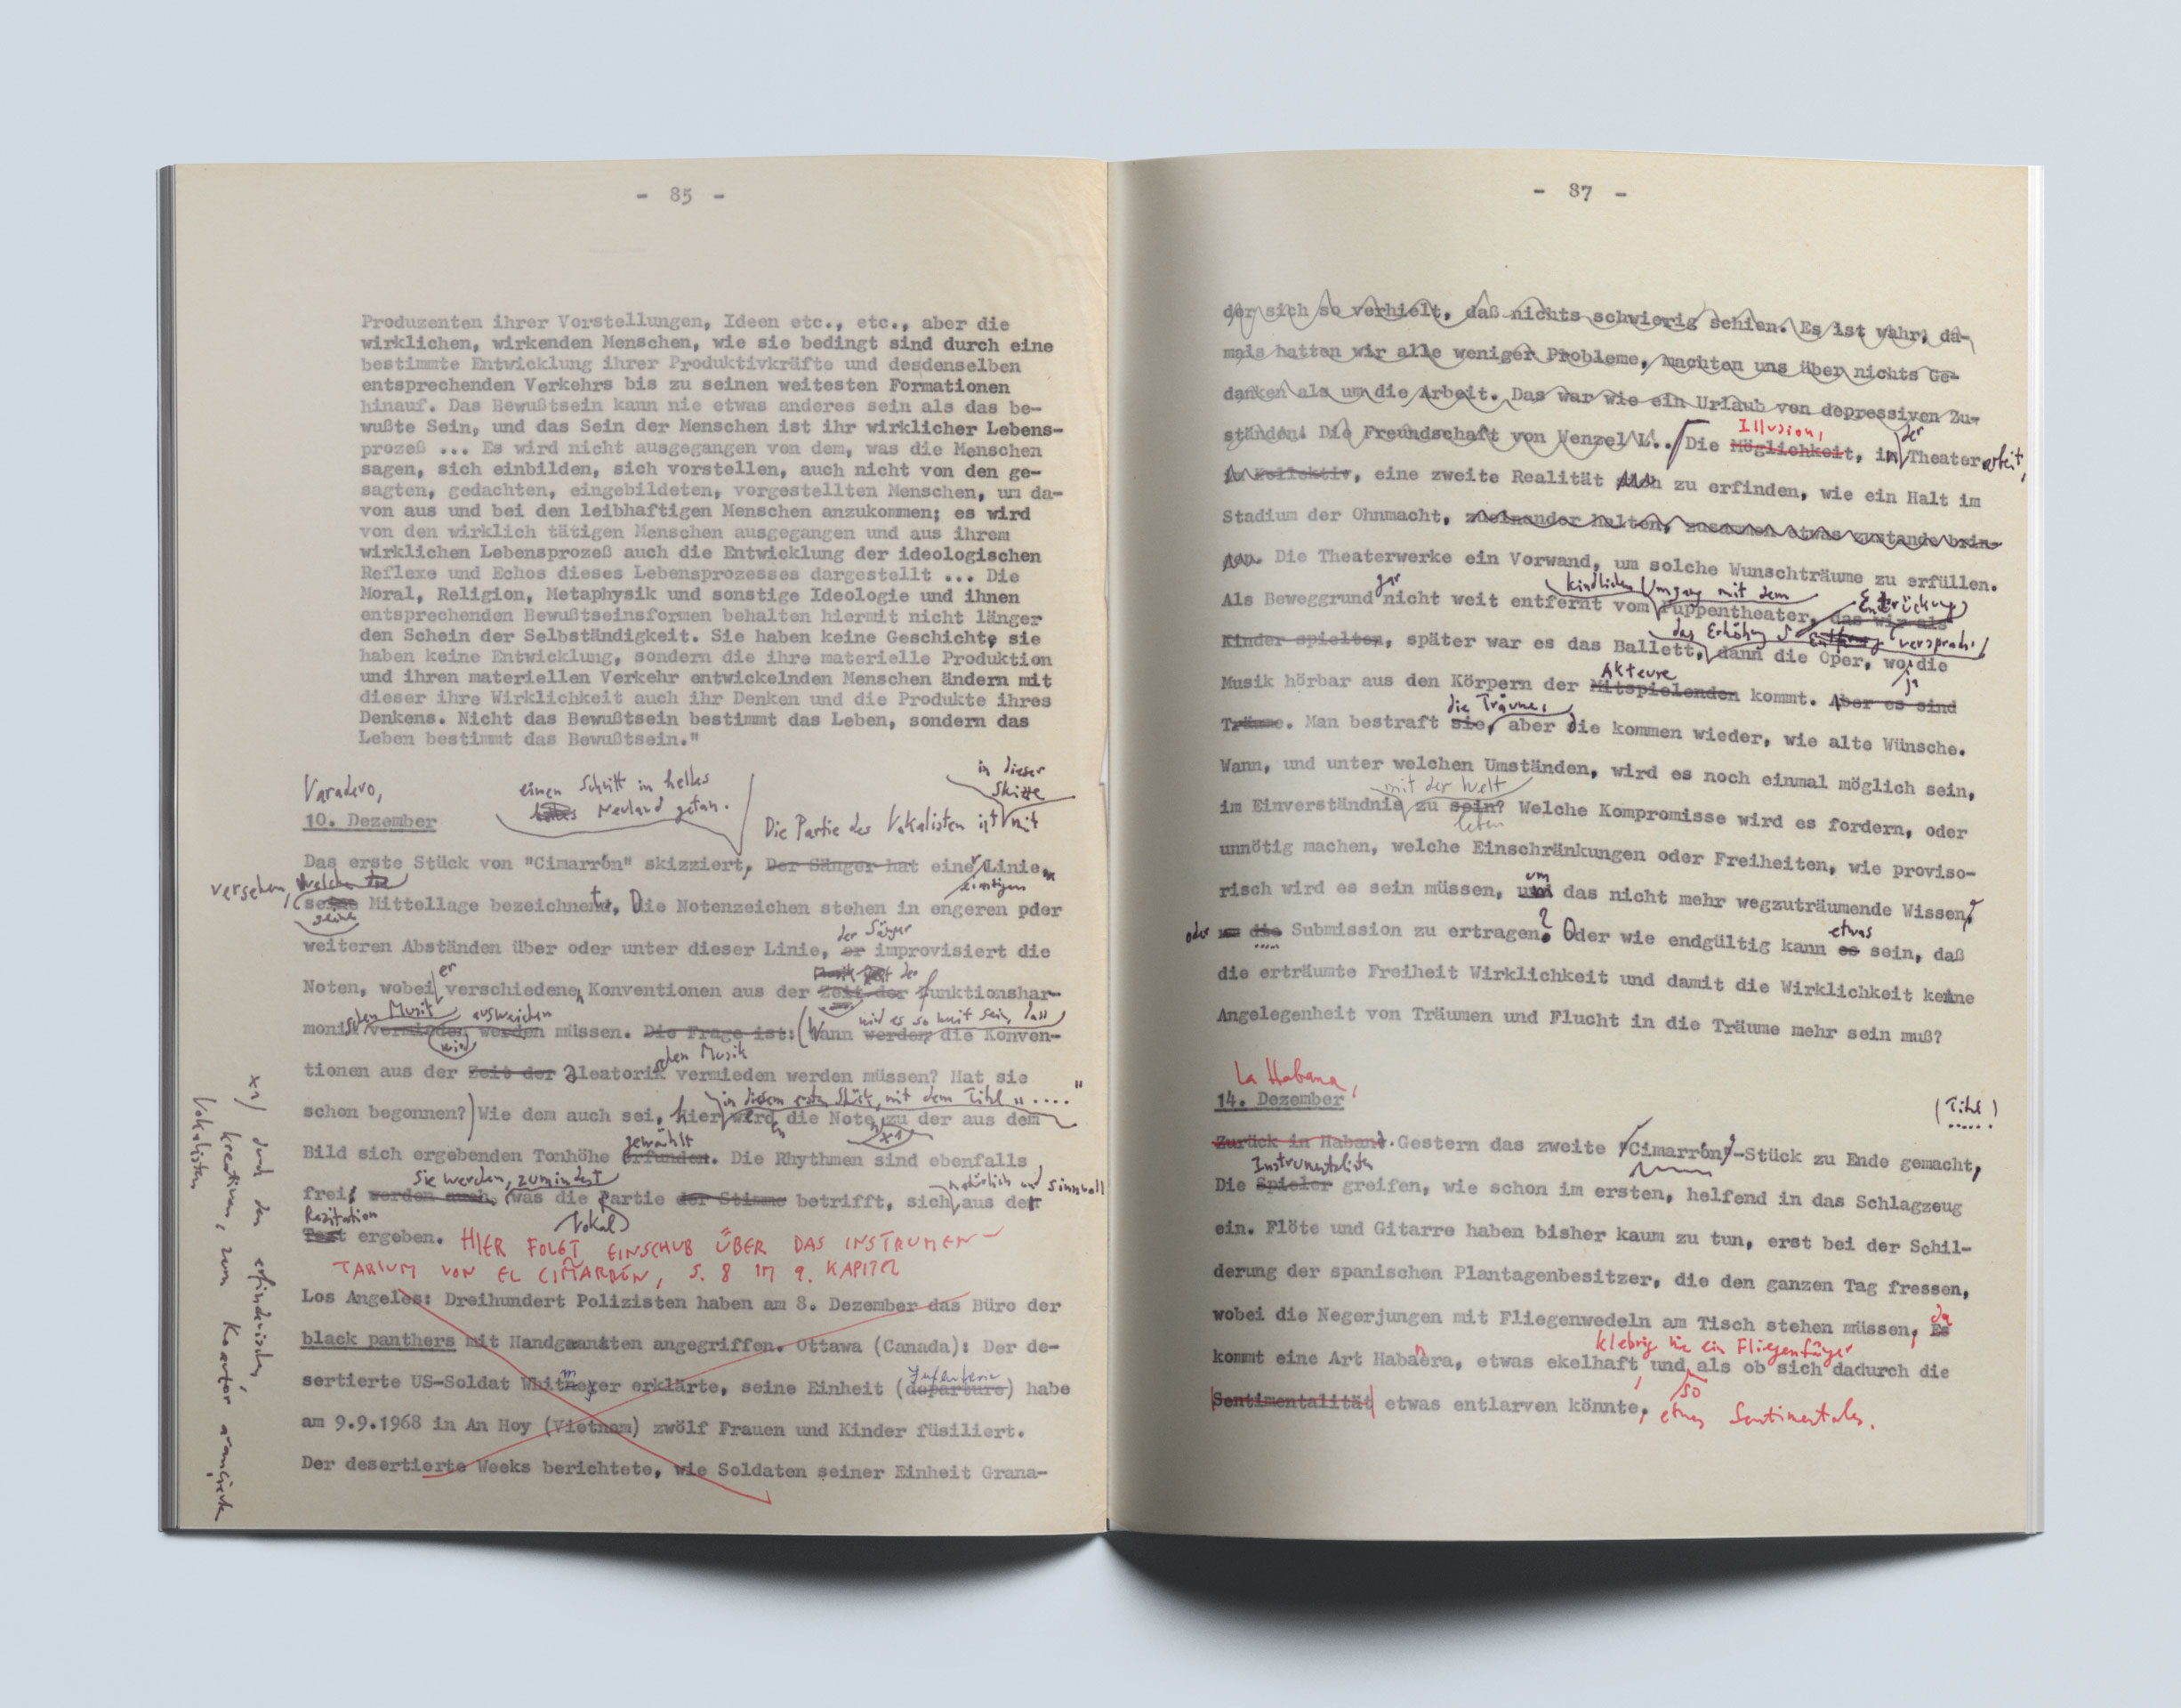 - 85 -
Produzenten ihrer Vorstellungen, Ideen etc., etc., aber die
wirklichen, wirkenden Menschen, wie sie bedingt sind durch eine
bestimmte Entwicklung ihrer Produktivkräfte und desdenselben
entsprechenden Verkehrs bis zu seinen weitesten Formationen
hinauf. Das Bewußtsein kann nie etwas anderes sein als das be-
wußte Sein, und das Sein der Menschen ist ihr wirklicher Lebens-
prozeß ... Es wird nicht ausgegangen von dem, was die Menschen
sagen, sich einbilden, sich vorstellen, auch nicht von den ge-
sagten, gedachten, eingebildeten, vorgestellten Menschen, um da-
von aus und bei den leibhaftigen Menschen anzukommen; es wird
von den wirklich tätigen Menschen ausgegangen und aus ihrem
wirklichen Lebensprozeß auch die Entwicklung der ideologischen
Reflexe und Echos dieses Lebensprozesses dargestellt ... Die
Moral, Religion, Metaphysik und sonstige Ideologie und ihnen
entsprechenden Bewußtseinsformen behalten hiermit nicht länger
den Schein der Selbständigkeit. Sie haben keine Geschichte, sie
haben keine Entwicklung, sondern die ihre materielle Produktion
und ihren materiellen Verkehr entwickelnden Menschen ändern mit
dieser ihre Wirklichkeit auch ihr Denken und die Produkte ihres
Denkens. Nicht das Bewußtsein bestimmt das Leben, sondern das
Leben bestimmt das Bewußtsein."
in dieser
Skizze
Varadero,
einen Schritt in helles
Neuland getan.
10. Dezember
Die Partie des Vokalisten ist mit
Das erste Stück von "Cimarrón" skizziert, Der Sänger hat einer Linie
versehen, welche die
einzigen
seine Mittellage bezeichnet, Die Notenzeichen stehen in engeren oder
der Sänger
weiteren Abständen über oder unter dieser Linie, er improvisiert die
er
Noten, wobei verschiedene Konventionen aus der Zeit der Funktionshar-
schen Musik ausweichen
wird es so weit sein, dass
monik vermieden werden müssen. Die Frage ist: Wann werden die Konven-
wird
schen Musik
tionen aus der Zeit der Aleatorik vermieden werden müssen? Hat sie
in diesem ersten Stück, mit dem Titel "....."
schon begonnen? Wie dem auch sei, hier werden die Noten zu der aus dem
x1
gewählt
Bild sich ergebenden Tonhöhe erfunden. Die Rhythmen sind ebenfalls
Sie werden, zumindest
natürlich und sinnvoll
frei, werden auch, was die Partie der Stimme betrifft, sich aus der
Rezitation
Vokal
Text ergeben. HIER FOLGT EINSCHUB ÜBER DAS INSTRUMEN-
TARIUM VON EL CIMARRÓN, S. 8 IM 9. KAPITEL
Los Angeles: Dreihundert Polizisten haben am 8. Dezember das Büro der
black panthers mit Handgranaten angegriffen. Ottawa (Canada): Der de-
m
sertierte US-Soldat Whitmeyer erklärte, seine Einheit (departure) habe
am 9.9.1968 in An Hoy (Vietnam) zwölf Frauen und Kinder füsiliert.
Der desertierte Weeks berichtete, wie Soldaten seiner Einheit Grana-
x1) durch den erfinderischen,
kreativen, zum Koautor
Vokalisten
- 87 -
der sich so verhielt, daß nichts schwierig schien. Es ist wahr, da-
mals hatten wir alle weniger Probleme, machten uns über nichts Ge-
danken als um die Arbeit. Das war wie ein Urlaub von depressiven Zu-
Illusion, der
ständen. Die Freundschaft von Wenzel L.. Die Möglichkeit, in Theaterarbeit,
im Kollektiv, eine zweite Realität zu erfinden, wie ein Halt im
Stadium der Ohnmacht, zueinander halten, zusammen etwas zustande brin-
gen. Die Theaterwerke ein Vorwand, um solche Wunschträume zu erfüllen.
gar kindlichen Umgang mit dem
Als Beweggrund nicht weit entfernt vom Puppentheater, das wir als
das Erhöhung versprach,
Kinder spielten, später war es das Ballett, dann die Oper, wo die
Akteure
ja
Musik hörbar aus den Körpern der Mitspielenden kommt. Aber es sind
die Träume,
Träume. Man bestraft sie, aber die kommen wieder, wie alte Wünsche.
Wann, und unter welchen Umständen, wird es noch einmal möglich sein,
mit der Welt
im Einverständnis zu sein? Welche Kompromisse wird es fordern, oder
leben
unnötig machen, welche Einschränkungen oder Freiheiten, wie proviso-
um
risch wird es sein müssen, und das nicht mehr wegzuträumende Wissen,
etwas
oder die Submission zu ertragen? Oder wie endgültig kann es sein, daß
die erträumte Freiheit Wirklichkeit und damit die Wirklichkeit keine
Angelegenheit von Träumen und Flucht in die Träume mehr sein muß?
La Habana,
14. Dezember
(Titel)
Zurück in Habana. Gestern das zweite "Cimarrón"-Stück zu Ende gemacht,
Instrumentalisten
Die Spieler greifen, wie schon im ersten, helfend in das Schlagzeug
ein. Flöte und Gitarre haben bisher kaum zu tun, erst bei der Schil-
derung der spanischen Plantagenbesitzer, die den ganzen Tag fressen,
da
wobei die Negerjungen mit Fliegenwedeln am Tisch stehen müssen, Es
klebrig wie ein Fliegenfänger
kommt eine Art Habanera, etwas ekelhaft, und als ob sich dadurch die
so
Sentimentalität etwas entlarven könnte, etwas Sentimentales.